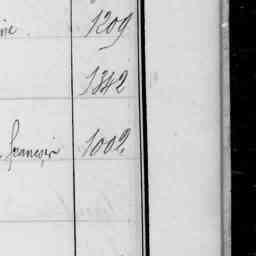 1209
1342
françois 1002